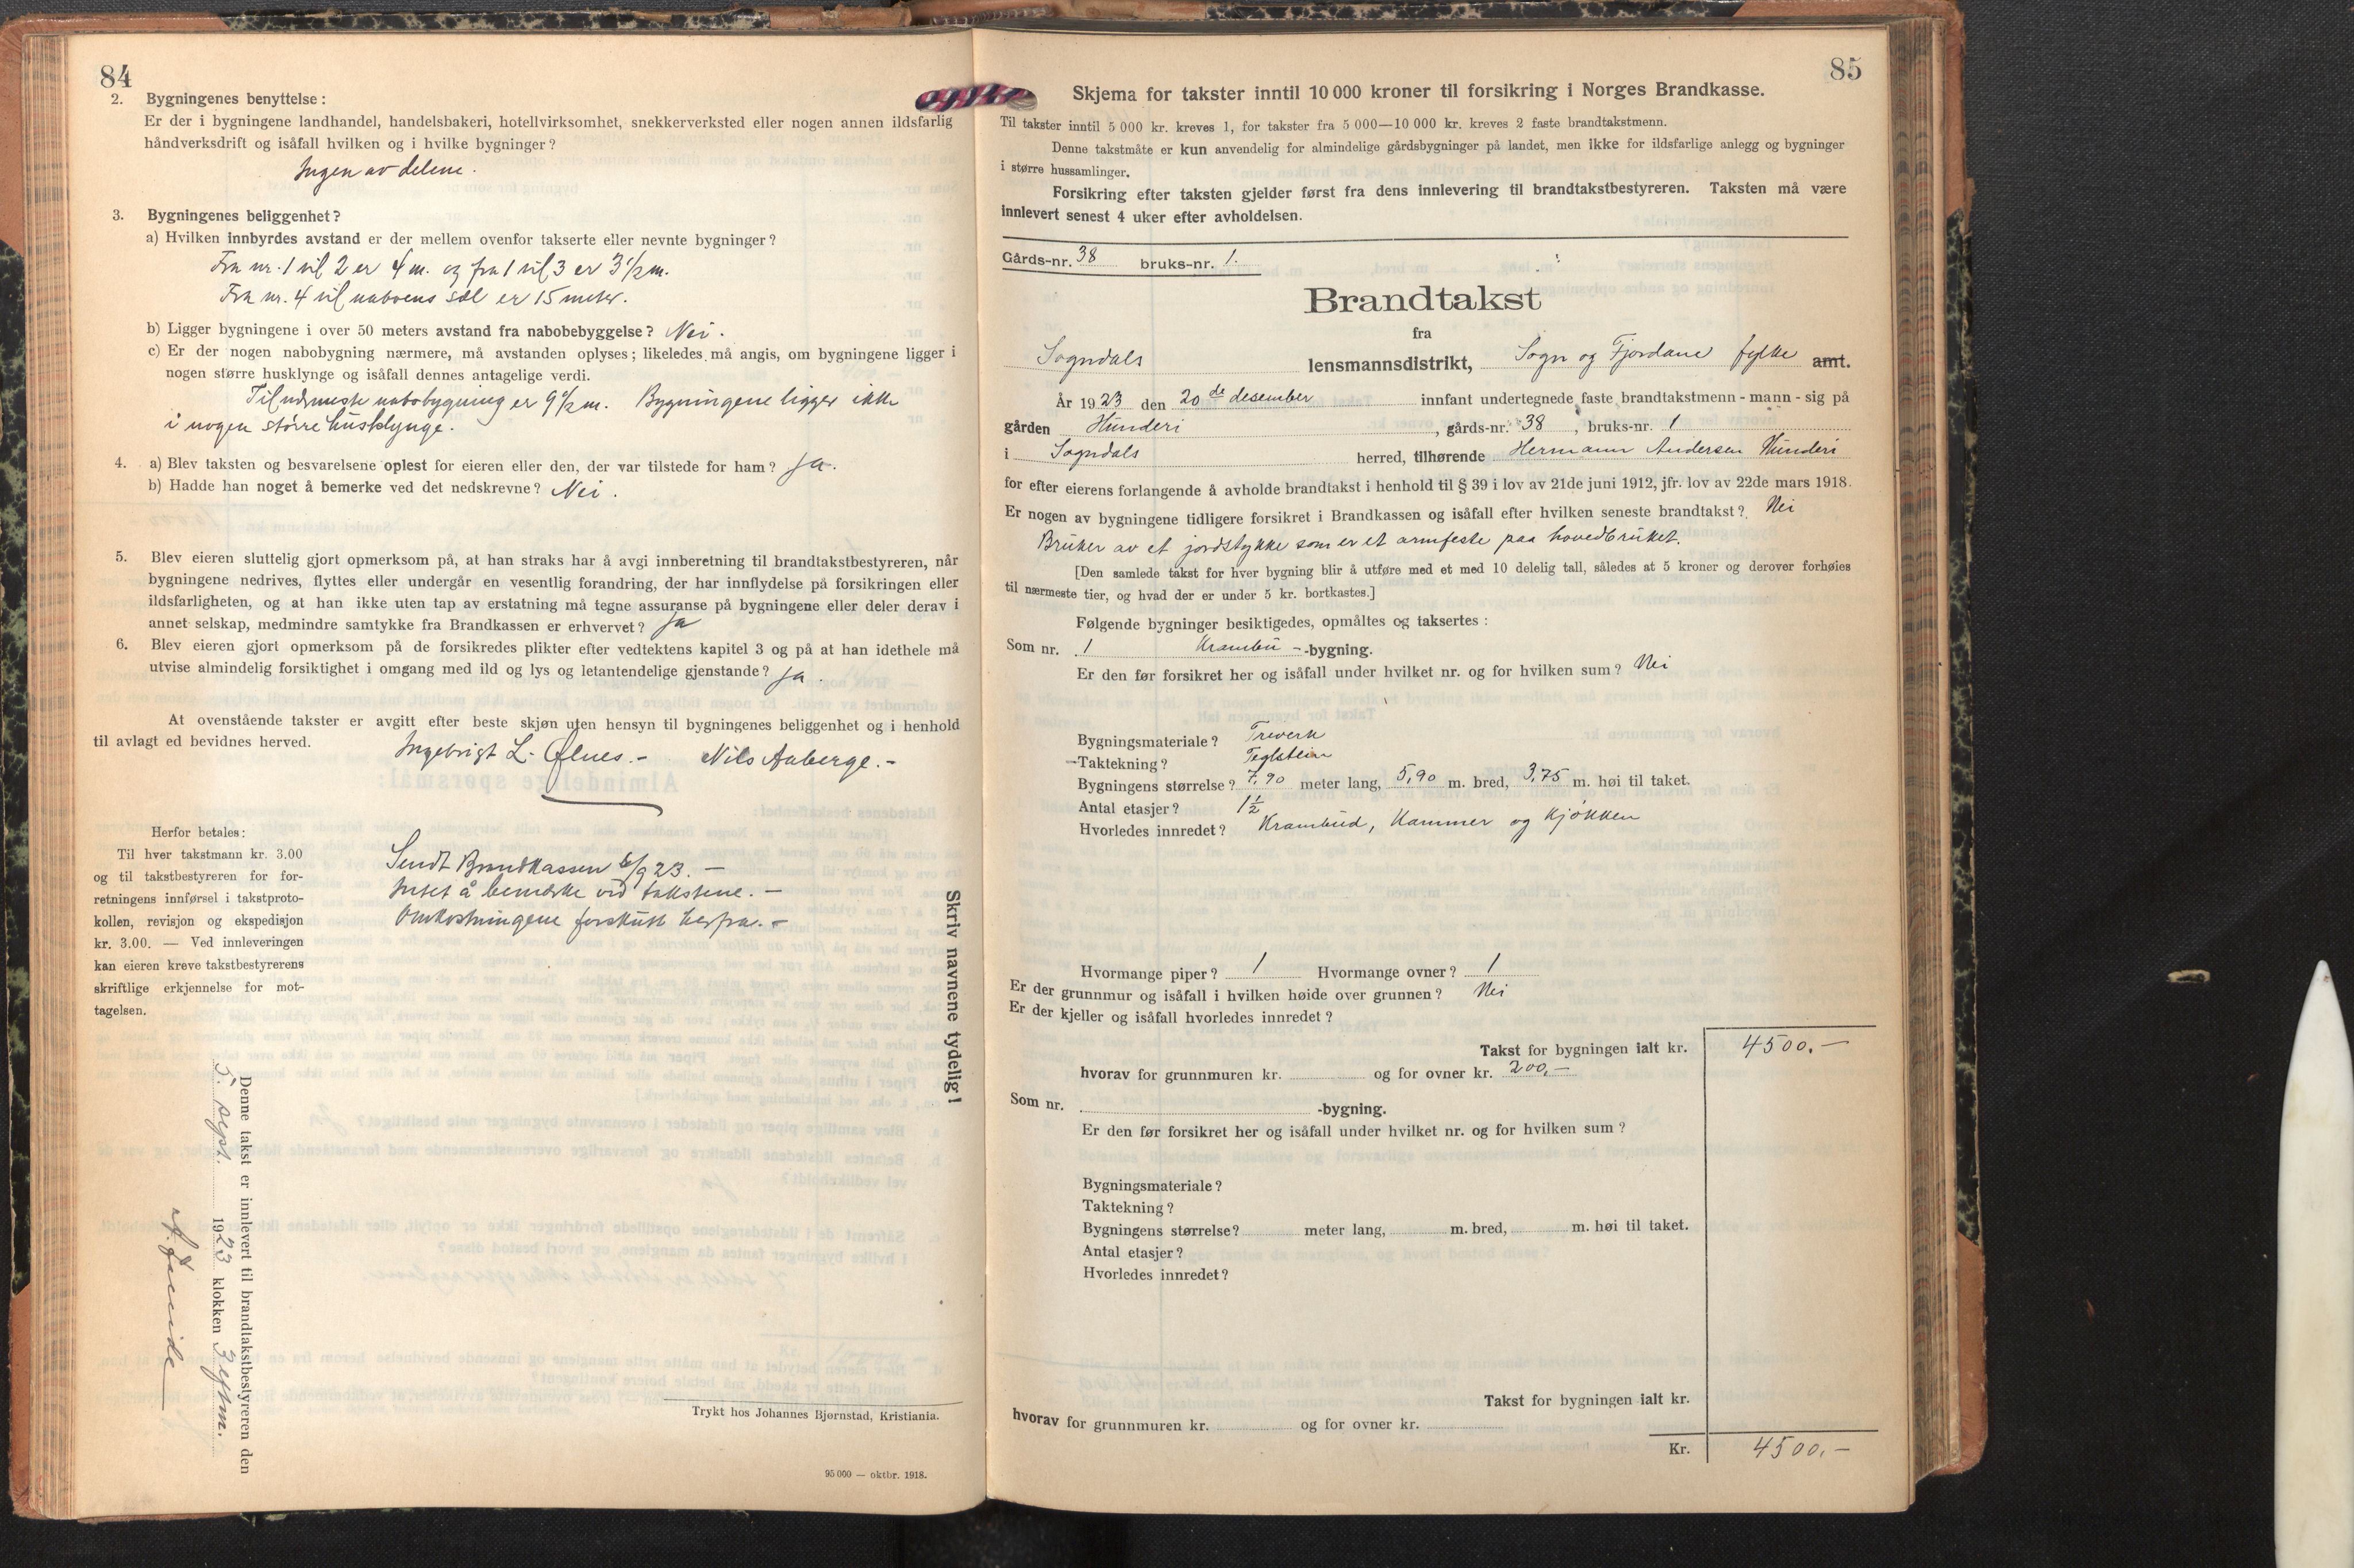 84
2. Bygningenes benyttelse:
Er der i bygningene landhandel, handelsbakeri, hotellvirksomhet, snekkerverksted eller nogen annen ildsfarlig
håndverksdrift og isåfall hvilken og i hvilke bygninger?
Ingen av delene.
3. Bygningenes beliggenhet?
a) Hvilken innbyrdes avstand er der mellem ovenfor takserte eller nevnte bygninger?
Fra nr. 1 til 2 er 4 m. og fra 1 til 3 er 3 1/2 m.
Fra nr. 4 til naboens sæl er 15 meter.
b) Ligger bygningene i over 50 meters avstand fra nabobebyggelse? Nei.
c) Er der nogen nabobygning nærmere, må avstanden oplyses; likeledes må angis, om bygningene ligger i
nogen større husklynge og isåfall dennes antagelige verdi.
Til nærmeste nabobygning er 9 1/2 m. Bygningene ligger ikke
i nogen større husklynge.
4. a) Blev taksten og besvarelsene oplest for eieren eller den, der var tilstede for ham? Ja.
b) Hadde han noget å bemerke ved det nedskrevne? Nei.
5. Blev eieren sluttelig gjort opmerksom på, at han straks har å avgi innberetning til brandtakstbestyreren, når
bygningene nedrives, flyttes eller undergår en vesentlig forandring, der har innflydelse på forsikringen eller
ildsfarligheten, og at han ikke uten tap av erstatning må tegne assuranse på bygningene eller deler derav i
annet selskap, medmindre samtykke fra Brandkassen er erhvervet? Ja
6. Blev eieren gjort opmerksom på de forsikredes plikter efter vedtektens kapitel 3 og på at han idethele må
utvise almindelig forsiktighet i omgang med ild og lys og letantendelige gjenstande? Ja.
At ovenstående takster er avgitt efter beste skjøn uten hensyn til bygningenes beliggenhet og i henhold
til avlagt ed bevidnes herved.
Ingebrigt L. Ølnes.- Nils Aaberge.-
Herfor betales:
Til hver takstmann kr. 3.00
og til takstbestyreren for for-
retningens innførsel i takstproto-
kollen, revisjon og ekspedisjon
kr. 3.00. — Ved innleveringen
kan eieren kreve takstbestyrerens
skriftlige erkjennelse for mot-
tagelsen.
Sendt Brandkassen 6/9 23. -
Intet å bemerke ved takstene. -
Omkostningene forskutt herfra. -
Skriv navnene tydelig!
Denne takst er innlevert til brandtakstbestyreren den
5. sept. 1923 klokken 3 eftm.
Trykt hos Johannes Bjørnstad, Kristiania.
95 000 — oktbr. 1918.
85
Skjema for takster inntil 10 000 kroner til forsikring i Norges Brandkasse.
Til takster inntil 5 000 kr. kreves 1, for takster fra 5 000—10 000 kr. kreves 2 faste brandtakstmenn.
Denne takstmåte er kun anvendelig for almindelige gårdsbygninger på landet, men ikke for ildsfarlige anlegg og bygninger
i større hussamlinger.
Forsikring efter taksten gjelder først fra dens innlevering til brandtakstbestyreren. Taksten må være
innlevert senest 4 uker efter avholdelsen.
Gårds-nr. 38 bruks-nr. 1.
Brandtakst
fra
Sogndals lensmannsdistrikt, Sogn og Fjordane fylke amt.
År 1923 den 20de desember innfant undertegnede faste brandtakstmenn - mann - sig på
gården Hunderi, gårds-nr. 38, bruks-nr. 1
i Sogndals herred, tilhørende Hermann Andersen Hunderi
for efter eierens forlangende å avholde brandtakst i henhold til § 39 i lov av 21de juni 1912, jfr. lov av 22de mars 1918.
Er nogen av bygningene tidligere forsikret i Brandkassen og isåfall efter hvilken seneste brandtakst? Nei
Bruker av et jordstykke som er et armfeste paa hovedbruket.
[Den samlede takst for hver bygning blir å utføre med et med 10 delelig tall, således at 5 kroner og derover forhøies
til nærmeste tier, og hvad der er under 5 kr. bortkastes.]
Følgende bygninger besiktigedes, opmåltes og taksertes:
Som nr. 1 Krambu - -bygning.
Er den før forsikret her og isåfall under hvilket nr. og for hvilken sum? Nei
Bygningsmateriale? Treverk
Taktekning? Teglstein
Bygningens størrelse? 7,90 meter lang, 5,90 m. bred, 3,75 m. høi til taket.
Antal etasjer? 1 1/2
Hvorledes innredet? Krambud, Kammer og Kjøkken
Hvormange piper? 1 Hvormange ovner? 1
Er der grunnmur og isåfall i hvilken høide over grunnen? Nei
Er der kjeller og isåfall hvorledes innredet?
Takst for bygningen ialt kr. 4500.-
hvorav for grunnmuren kr. og for ovner kr. 200,-
Som nr. -bygning.
Er den før forsikret her og isåfall under hvilket nr. og for hvilken sum?
Bygningsmateriale?
Taktekning?
Bygningens størrelse? meter lang, m. bred, m. høi til taket.
Antal etasjer?
Hvorledes innredet?
Takst for bygningen ialt kr.
hvorav for grunnmuren kr. og for ovner kr.
Kr. 4500.-